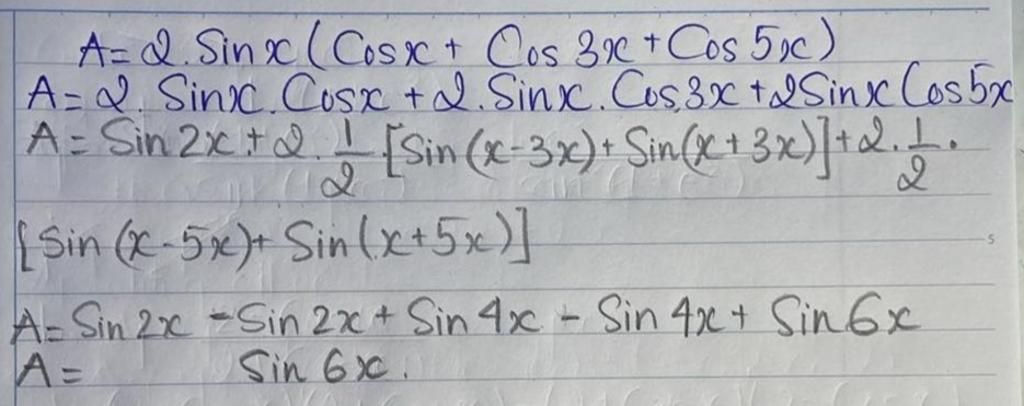 A=2.Sinx(Cosx+ Cos 3x+Cos 5x)
A=2. Sinx.Cosx+2.Sinx.Cos3x+2SinxCos5x
A=Sin2x+2.1/2[Sin(x-3x)+Sin(x+3x)]+2.1/2.
[Sin(x-5x)+Sin(x+5x)]
A=Sin2x-Sin2x+Sin4x-Sin4x+Sin6x
A= Sin6x.